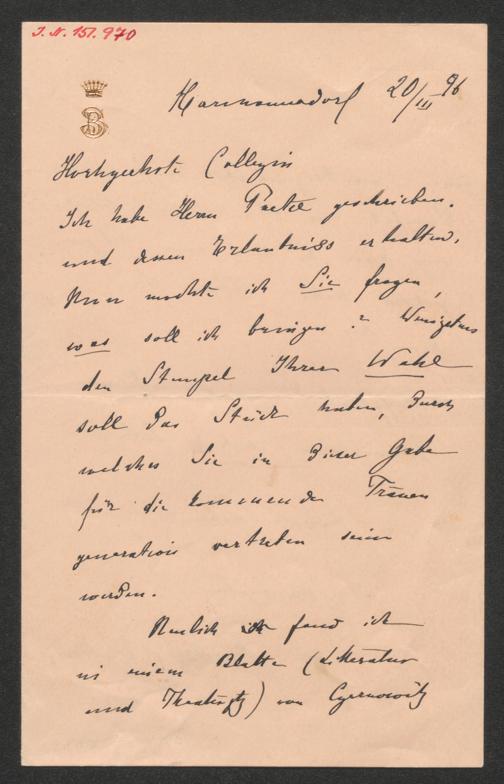 I. N. 151.970
SB
Harmannsdorf 20/III 96
Hochgeehrte Collegin
Ich habe Herrn Paetel geschrieben.
und dessen Erlaubniss erhalten.
Nun möchte ich Sie fragen,
was soll ich bringen? Wenigstens
den Stempel Ihrer Wahl
soll das Stück haben, durch
welches Sie in dieser Gabe
für die kommende Frauen
generation vertreten sein
werden.
Neulich fand ich
in einem Blatte (Literatur
und Theaterztg) von Czernowitz